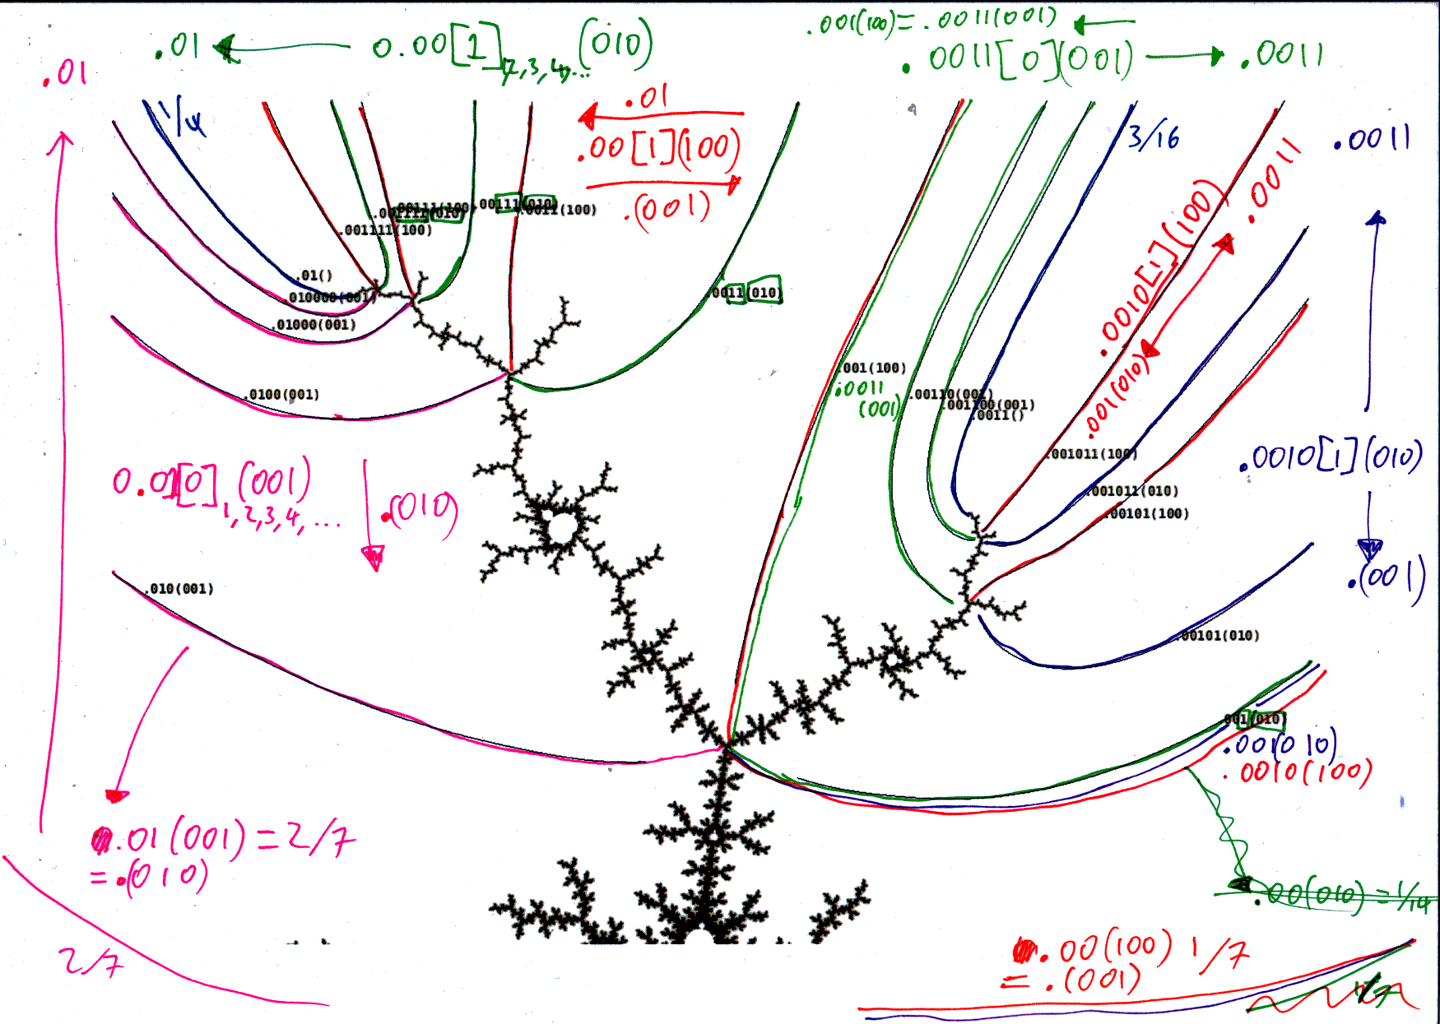 .001(100)=.0011(001)
.01
0.00[1] (010)
2,3,4,...
.0011[0](001)
.0011
.01
1/4
.01
.00[1](100)
.(001)
3/16
.0011
.0011
.0010[1](100)
.001(010)
.00111(100)
.001111(010)
.001111(100)
.00111(010)
.0011(100)
.01()
.010000(001)
.01000(001)
.0011(010)
.0100(001)
.001(100)
.0011
(001)
.00110(001)
.001100(001)
.0011()
.001011(100)
.001011(010)
.00101(100)
.0010[1](010)
.(001)
0.01[0] (001)
1,2,3,4,...
.(010)
.010(001)
.00101(010)
.001(010)
.001(010)
.0010(100)
.01(001)=2/7
=.(010)
.00(010)=1/14
2/7
.00(100) 1/7
=.(001)
1/7